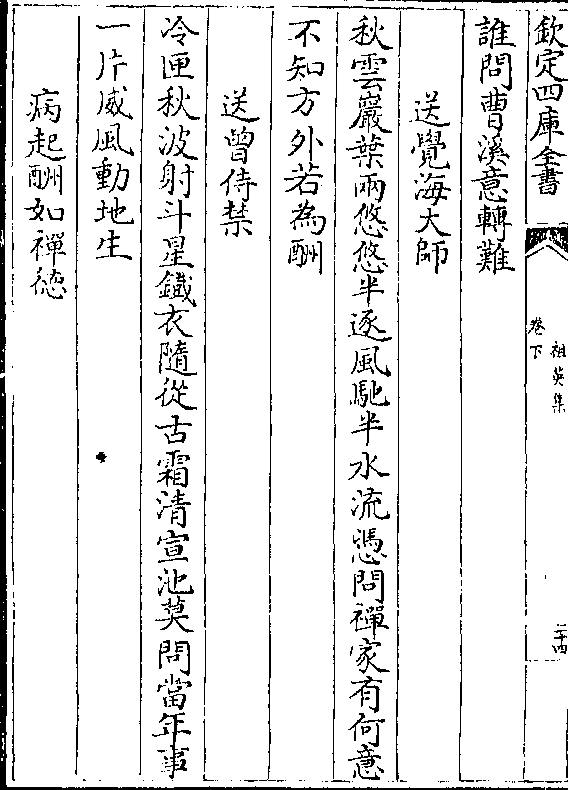 欽定四庫全書
祖英集
卷下
二十四
誰問曹溪意轉難
送覺海大師
秋雲巖葉兩悠悠半逐風馳半水流憑問禪家有何意
不知方外若為酬
送曾侍禁
冷匣秋波射斗星鐵衣隨從古霜清宣池莫問當年事
一片威風動地生
病起酬如禪德